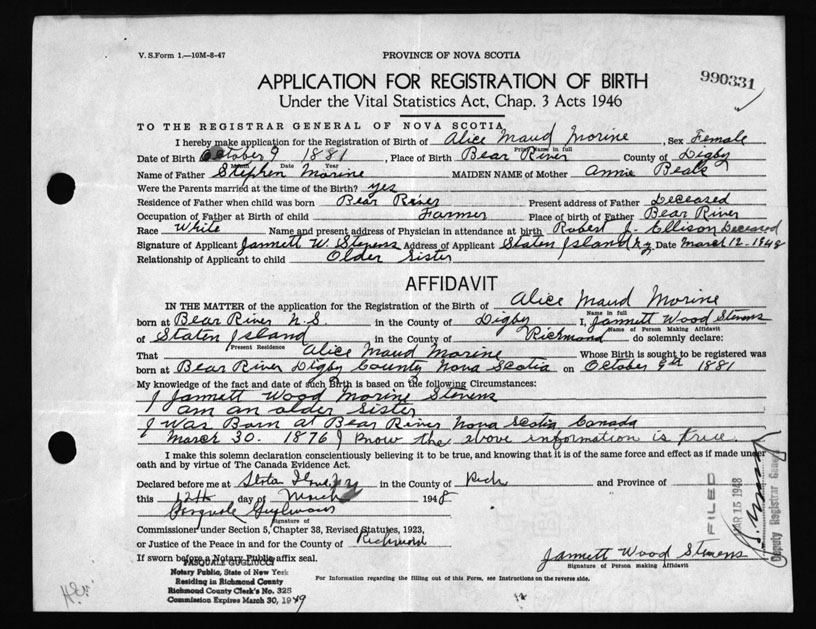 V. S. Form 1.—10M-8-47
PROVINCE OF NOVA SCOTIA
990331
APPLICATION FOR REGISTRATION OF BIRTH
Under the Vital Statistics Act, Chap. 3 Acts 1946
TO THE REGISTRAR GENERAL OF NOVA SCOTIA
I hereby make application for the Registration of Birth of Alice Maud Morine, Sex Female
Print Name in full
Date of Birth October 9 1881, Place of Birth Bear River County of Digby
Month Date Year
Name of Father Stephen Morine MAIDEN NAME of Mother Annie Beals
Were the Parents married at the time of the Birth? yes
Residence of Father when child was born Bear River Present address of Father Deceased
Occupation of Father at Birth of child Farmer Place of birth of Father Bear River
Race White Name and present address of Physician in attendance at birth Robert J. Ellison Deceased
Signature of Applicant Jannett W. Stevens Address of Applicant Staten Island N.y. Date March 12-1948
Relationship of Applicant to child Older Sister
AFFIDAVIT
IN THE MATTER of the application for the Registration of the Birth of Alice Maud Morine
Name in full
born at Bear River N.S in the County of Digby I, Jannett Wood Stevens
Name of Person Making Affidavit
of Staten Island in the County of Richmond do solemnly declare:
Present Residence
That Alice Maud Morine Whose Birth is sought to be registered was
born at Bear River Digby County Nova Scotia on October 9th 1881
My knowledge of the fact and date of such Birth is based on the following Circumstances:
I Jannett Wood Morine Stevens
am an older sister
I was Born at Bear River Nova Scotia Canada
March 30. 1876 I know the above information is true.
I make this solemn declaration conscientiously believing it to be true, and knowing that it is of the same force and effect as if made under
oath and by virtue of The Canada Evidence Act.
Declared before me at in the County of Rich and Province of
this 12th day of March 1948
Pasquale Gugliucci
Signature of
Commissioner under Section 5, Chapter 38, Revised Statutes, 1923,
or Justice of the Peace in and for the County of Richmond
If sworn before a Notary Public affix seal.
Jannett Wood Stevens
Signature of Person making Affidavit
PASQUALE GUGLIUCCI
Notary Public, State of New York
Residing in Richmond County
Richmond County Clerk's No. 325
Commission Expires March 30, 1949
For Information regarding the filling out of this Form, see Instructions on the reverse side.
FILED
MAR 15 1948
Deputy Registrar General